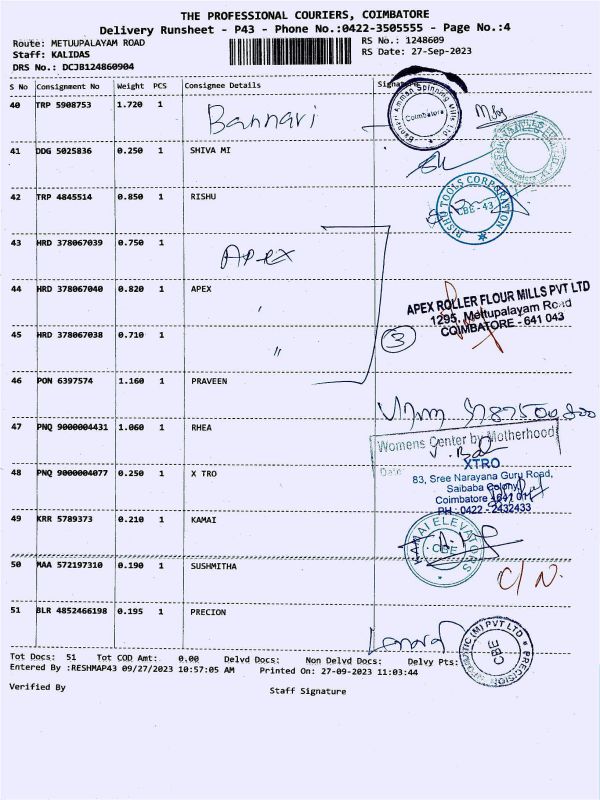 THE PROFESSIONAL COURIERS, COIMBATORE
Delivery Runsheet - P43 - Phone No.:0422-3505555 - Page No.:4
Route: METUUPALAYAM ROAD
RS No.: 1248609
Staff: KALIDAS
RS Date: 27-Sep-2023
DRS No.: DCJB124860904
S No Consignment No Weight PCS Consignee Details Signature
40 TRP 5908753 1.720 1 Bannari
Bannari Amman Spinning Mills Ltd.
Coimbatore
41 DDG 5025836 0.250 1 SHIVA MI
Coimbatore
42 TRP 4845514 0.850 1 RISHU
RISHU TOOLS CORPORATION
CBE-43
43 HRD 378067039 0.750 1 APEX
44 HRD 378067040 0.820 1 APEX
"
APEX ROLLER FLOUR MILLS PVT LTD
1295, Mettupalayam Road
COIMBATORE - 641 043
45 HRD 378067038 0.710 1
"
3
46 PON 6397574 1.160 1 PRAVEEN
47 PNQ 9000004431 1.060 1 RHEA
Womens Center by Motherhood
Date:
48 PNQ 9000004077 0.250 1 X TRO
XTRO
83, Sree Narayana Guru Road,
Saibaba Colony,
Coimbatore - 641 011
PH : 0422 - 2432433
49 KRR 5789373 0.210 1 KAMAI
KAMAI ELEVATORS
CBE
50 MAA 572197310 0.190 1 SUSHMITHA
C/N.
51 BLR 4852466198 0.195 1 PRECION
PRECISION
(M) PVT LTD
CBE
Tot Docs: 51 Tot COD Amt: 0.00 Delvd Docs: Non Delvd Docs: Delvy Pts:
Entered By :RESHMAP43 09/27/2023 10:57:05 AM Printed On: 27-09-2023 11:03:44
Verified By
Staff Signature